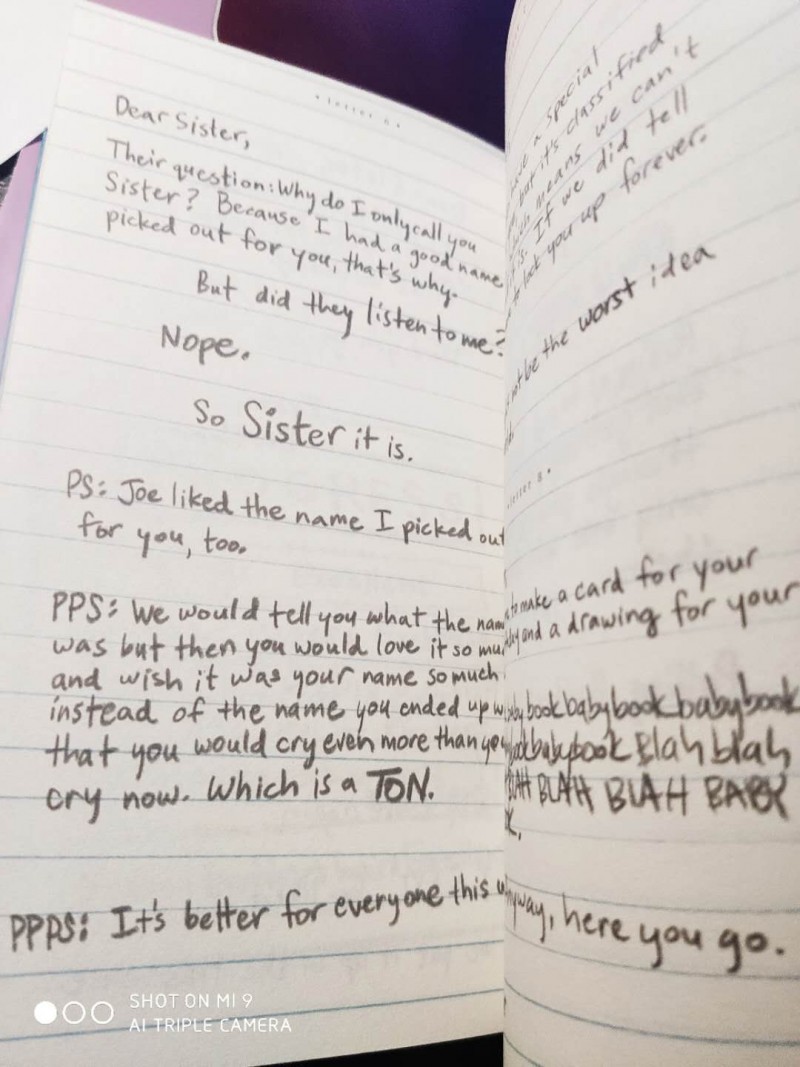 • letter 6 •
Dear Sister,
Their question: Why do I only call you
Sister? Because I had a good name
picked out for you, that's why.
But did they listen to me?
Nope.
So Sister it is.
PS: Joe liked the name I picked out
for you, too.
PPS: We would tell you what the
was but then you would love it so
and wish it was your name so much
instead of the name you ended up
that you would cry even more than
cry now. Which is a TON.
PPPS: It's better for everyone this
a special
but it's classified
means we can't
If we did tell
to lock you up forever.
be the worst idea
letter 8 •
to make a card for your
and a drawing for your
book babybook babybook
babybook Blah blah
BLAH BLAH BABY
here you go.
SHOT ON MI 9
AI TRIPLE CAMERA